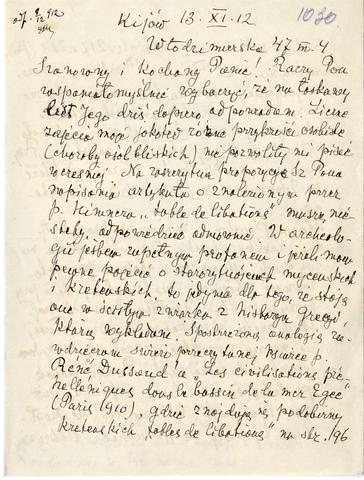 odp. 9/12 912
1030
Kijów 13. XI. 12
Włodzimierska 47 m. 4
Szanowny i Kochany Panie! Raczy Pan
wspaniałomyślnie wybaczyć, że na łaskawy
list Jego dziś dopiero odpowiadam. Liczne
zajęcia moje jakoteż rozne przykrości osobiste
(choroby osób bliskich) nie pozwoliły mi pisać
wcześniej. Na zaszczytną propozycję Sz. Pana
napisania artykułu o znalezionym przez
p. Himnera „table de libations" muszę nie-
stety, odpowiedzieć odmownie. W archeolo-
gii jestem zupełnym profanem i jeżeli mam
pewne pojęcie o starożytnościach myceńskich
i kreteńskich, to jedynie dla tego, że stoją
one w ścisłym związku z historyą Grecyi,
którą wykładam. Spostrzeżoną analogię za-
wdzięczam świeżo przeczytanej książce p.
René Dussaud'a „Les civilisations pré-
helléniques dans le bassin de la mer Egée"
(Paris 1910), gdzie znajdują się podobizny
kreteńskich „tables de libations" na str. 196